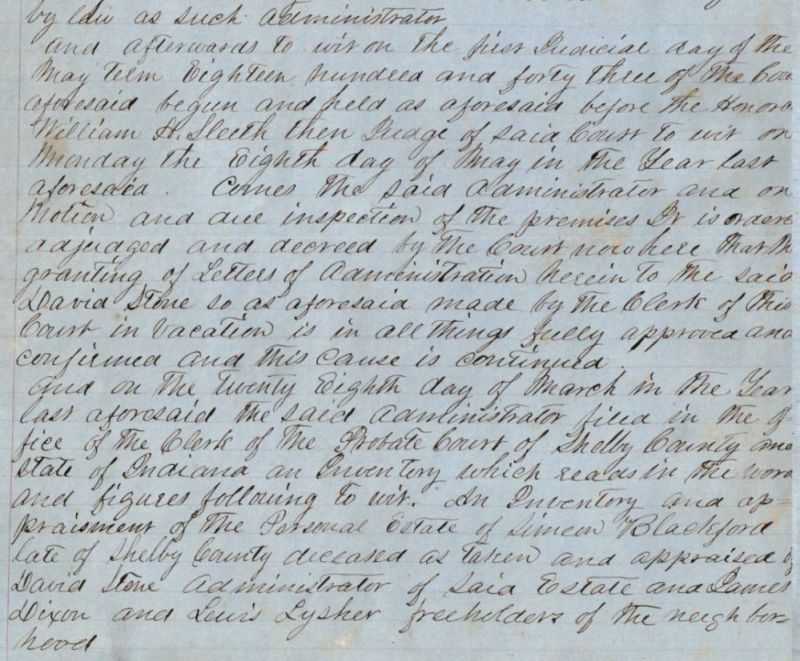 by law as such administrator
And afterwards to wit on the first Judicial day of the
May term Eighteen hundred and forty three of the Cou
aforesaid begun and held as aforesaid before the Honora
William H. Sleeth then Judge of said Court to wit on
Monday the Eighth day of May in the Year last
aforesaid. Comes the said administrator and on
Motion and due inspection of the premises It is ordere
adjudged and decreed by the Court now here that th
granting of Letters of Administration herein to the said
David Stone so as aforesaid made by the Clerk of this
Court in vacation is in all things fully approved and
confirmed and this cause is continued
And on the twenty Eighth day of March in the Year
last aforesaid the said Administrator filed in the of-
fice of the Clerk of the Probate Court of Shelby County and
state of Indiana an Inventory which reads in the word
and figures following to wit. An Inventory and ap-
praisment of the Personal Estate of Simeon Blackford
late of Shelby County deceased as taken and appraised by
David Stone Administrator of said Estate and James
Dixon and Lewis Lysher freeholders of the neighbor-
hood